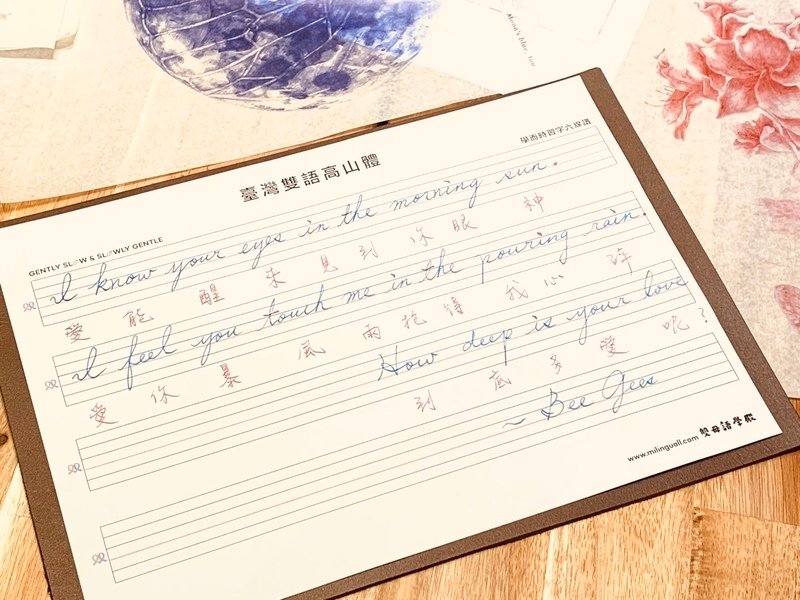 Moon's blur, too
學而時習字六線譜
臺灣雙語高山體
GENTLY SLOW & SLOWLY GENTLE
I know your eyes in the morning sun.
愛能醒來見到你眼神
I feel you touch me in the pouring rain.
愛你暴風雨抗得我心碎
How deep is your love
到底多愛呢?
~ Bee Gees
www.milinguall.com 雙母語學殿